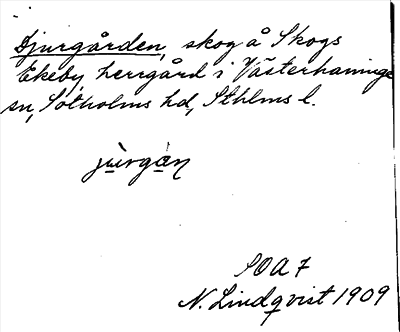 Djurgården, skog å Skogs
Ekeby, herrgård i Västerhaninge
sn, Sotholms hd, Sthlms l.
jùrgàn
SOA 7
N. Lindqvist 1909